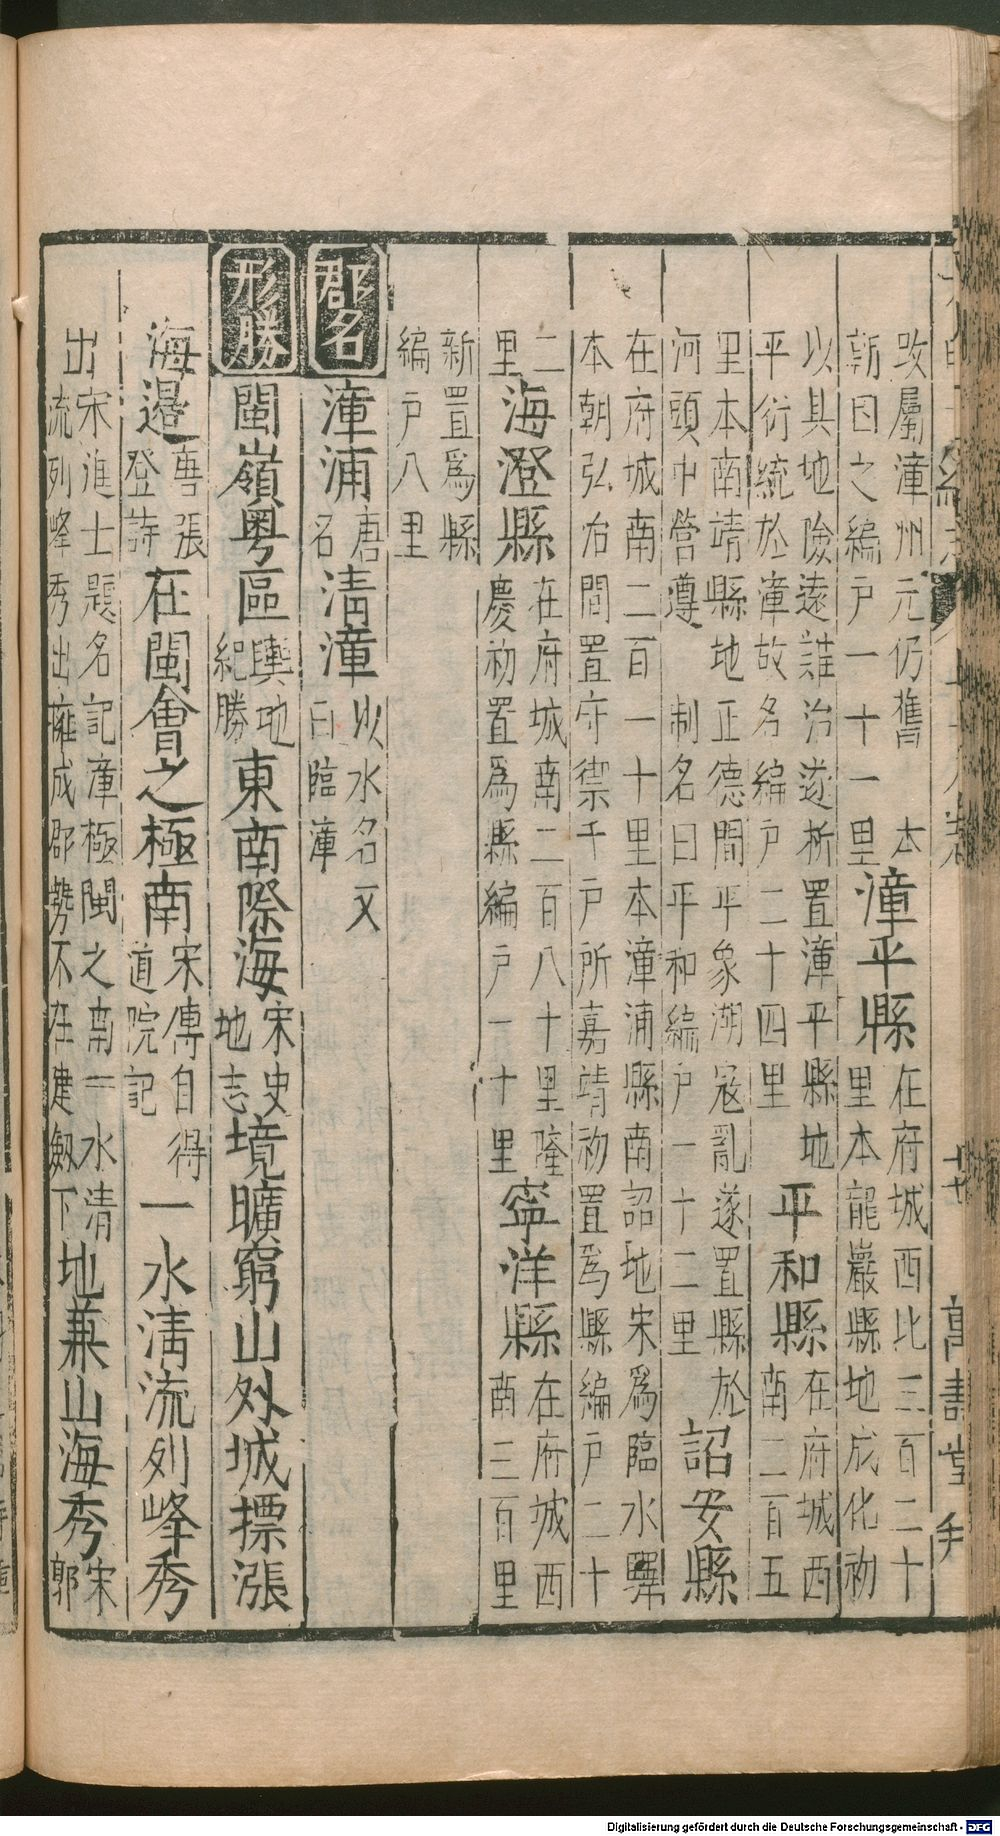 改屬漳州元仍舊　本
朝因之編戶一十一里
漳平縣
在府城西北三百二十
里本龍巖縣地成化初
以其地險遠難治遂析置漳平縣地
平衍統於漳故名編戶二十四里
平和縣
在府城西
南二百五
里本南靖縣地正德間平象湖寇亂遂置縣於
河頭中營遵　制名曰平和編戶一十二里
詔安縣
在府城南二百一十里本漳浦縣南詔地宋爲臨水驛
本朝弘治間置守禦千戶所嘉靖初置爲縣編戶二十
二
里
海澄縣
在府城南二百八十里隆
慶初置爲縣編戶一十里
寧洋縣
在府城西
南三百里
新置爲縣
編戶八里
郡名
漳浦
唐
名
清漳
以水名又
曰臨漳
形勝
閩嶺粤區
輿地
紀勝
東南際海
宋史
地志
境曠窮山外城標漲
海邉
唐張
登詩
在閩會之極南
宋傳自得
道院記
一水清流列峰秀
出
宋進士題名記漳極閩之南一水清
流列峰秀出雍成郡勢不在建劔下
地兼山海秀
宋
郭
萬壽堂刊
Digitalisierung gefördert durch die Deutsche Forschungsgemeinschaft - DFG